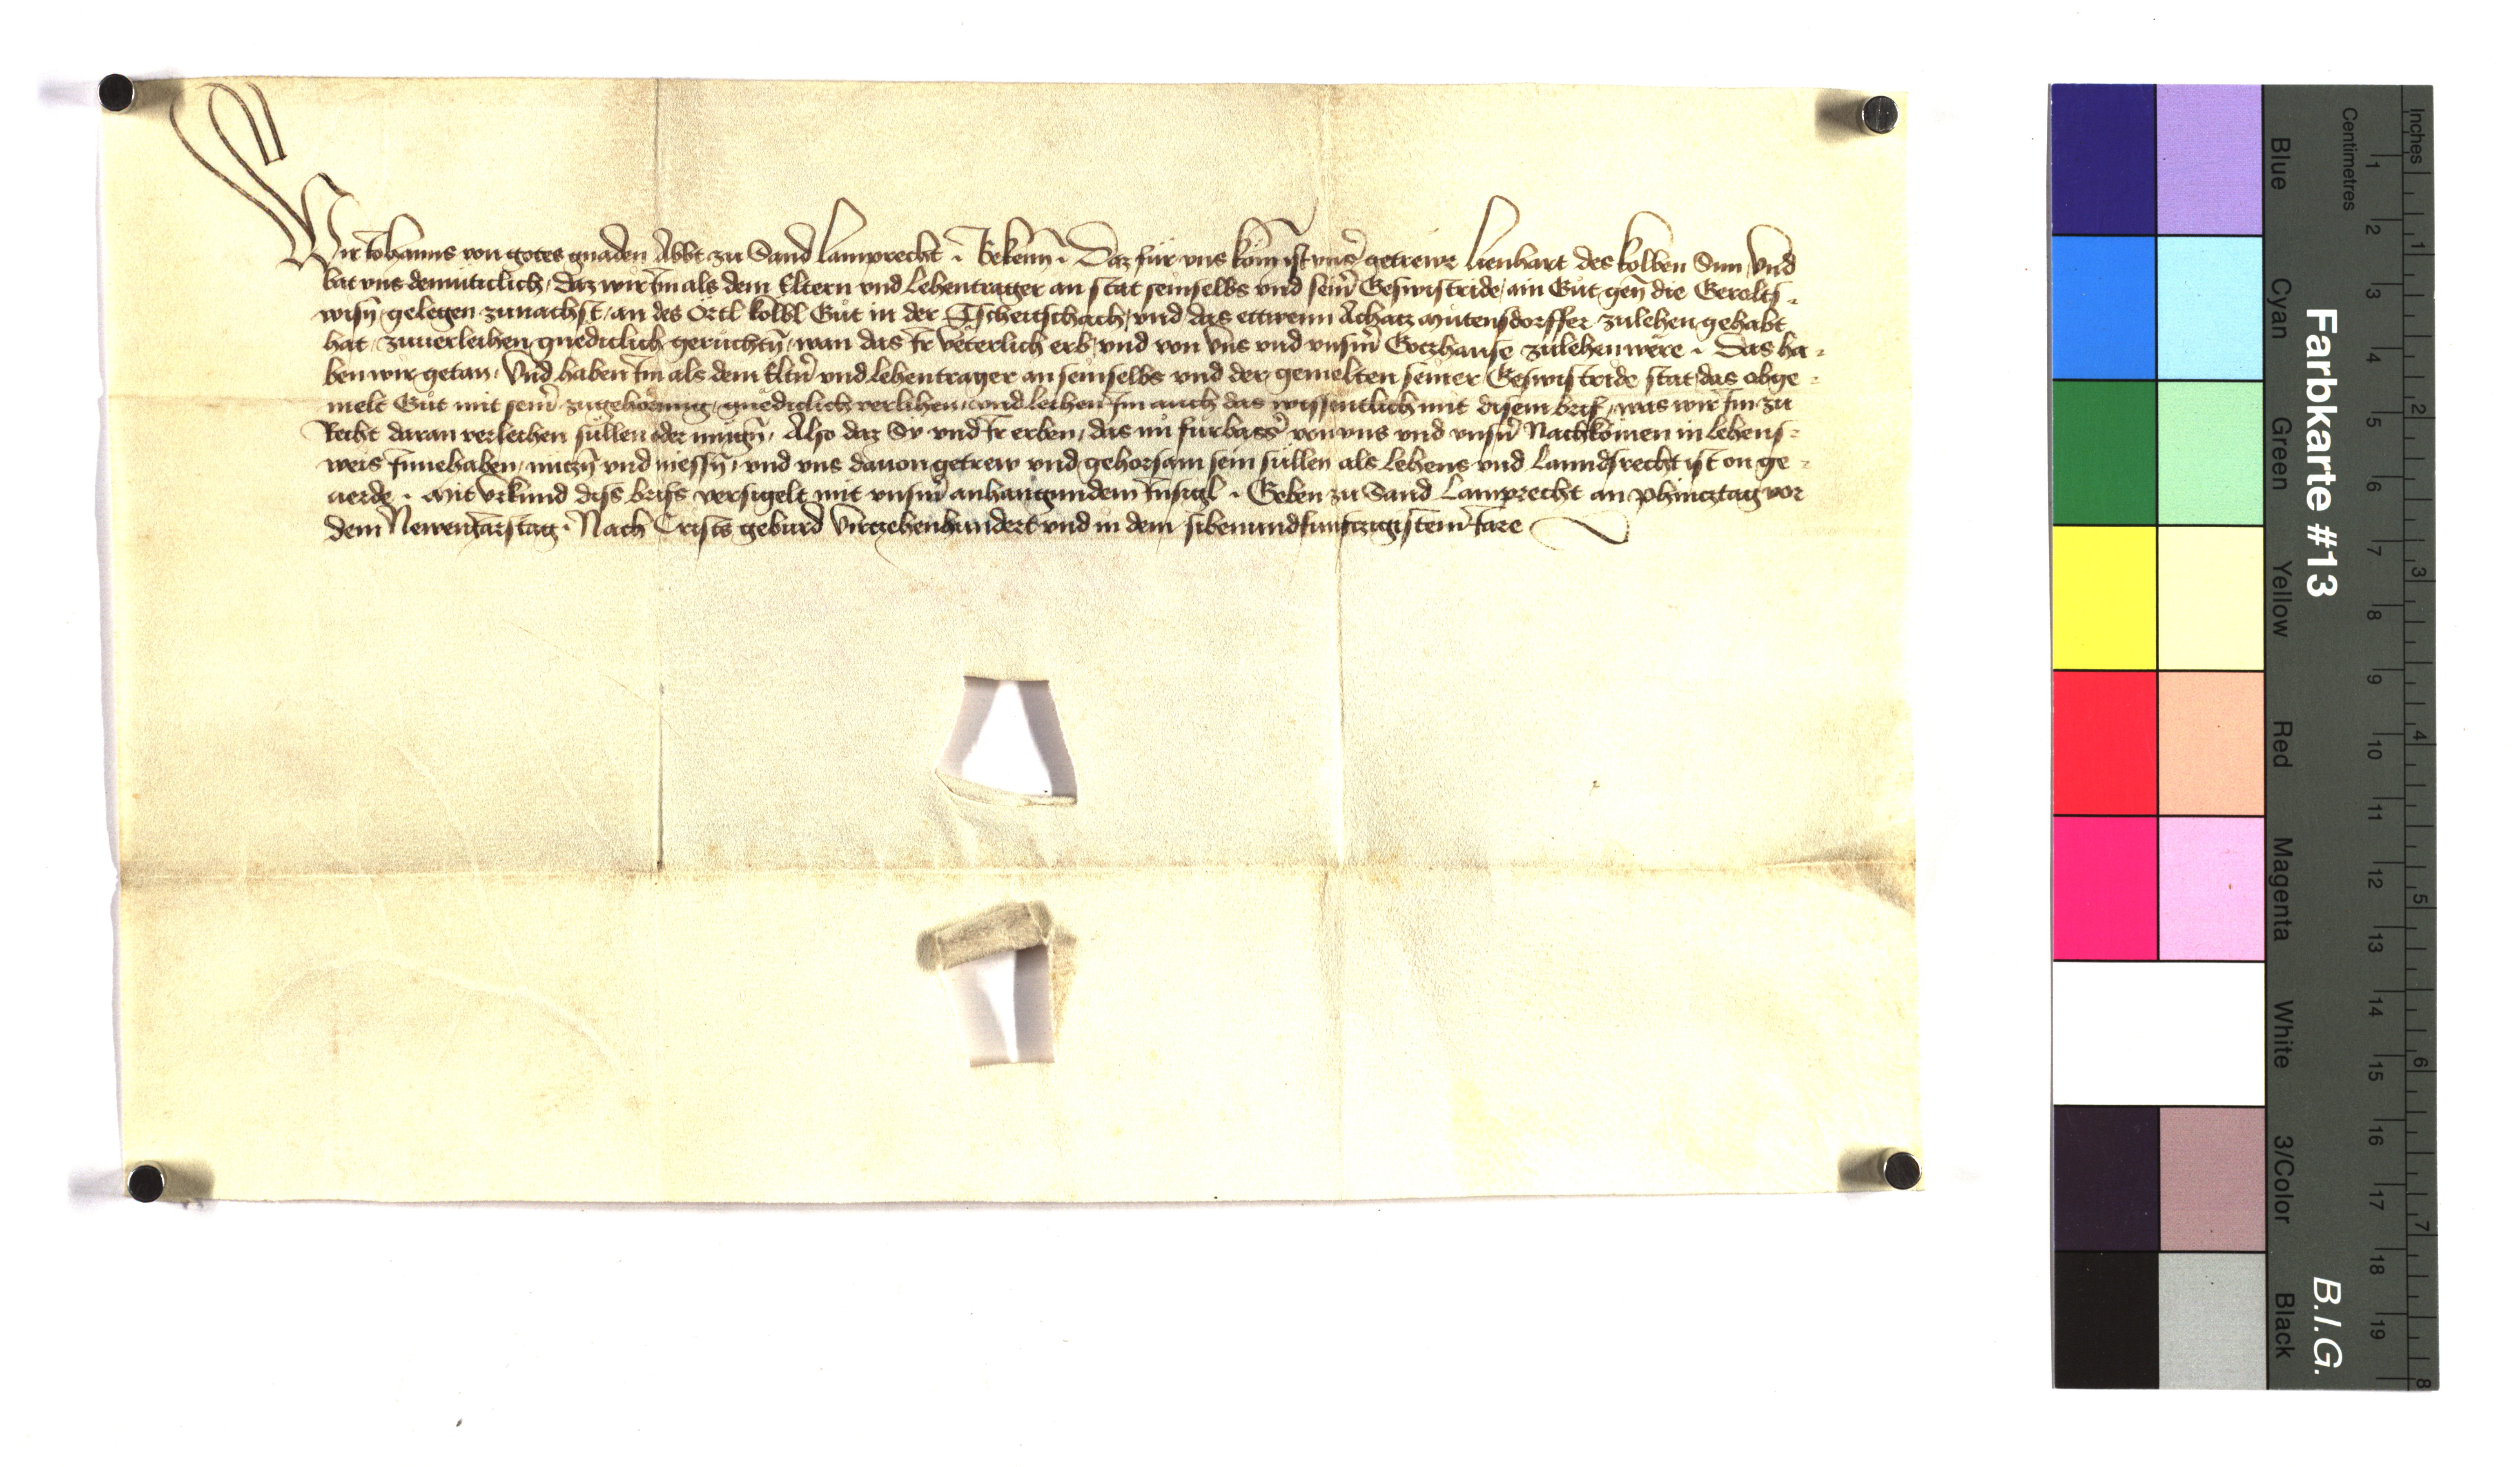 Wir Johanns von gotes gnaden Abbt zu Sand Lamprecht . Bekenn̄ . Daz für vns kom̄ ist vnser getrewr Lienhart des kolben Sun Vnd
bat vns demüticlich, Daz wir Im als dem Eltern vnd Lehentrager an stat seinselbs vnd seiner Geswistride, ain Gůt gen̄ die Gerolts=
wisn̄ gelegen zunachst, an des Örtl kolbl Gůt in der Tscheitschach, vnd das ettwenn Achatz Mutensdorffer zulehen gehabt
hat, zuuerleihen gnediclich geruchtn̄, wan das Ir veterlich erb, vnd von Vns vnd vnserm Gotzhause zulehen were . Das ha=
ben wir getan, Vnd haben Im als dem Eltern vnd lehentrager an seinselbs vnd der gemelten seiner Geswistride stat, das obge=
melt Gůt mit seiner zugehörung, gnediclich verlihen, vnd leihen Im auch das wissentlich mit disem brif, was wir Im zu
Recht daran verleihen süllen oder mugn̄, Also daz Sy vnd Ir erben, das nu fürbasser von vns vnd vnsern Nachkomen in lehens=
weis Innehaben, nutzn̄ vnd niessn̄, vnd vns dauon getrew vnd gehorsam sein süllen als Lehens vnd Lanndsrecht ist on ge=
uerde . Mit Vrkund diss brifs versigelt mit vnserm anhangundem Insigl . Geben zu Sand Lamprecht an Phincztag vor
dem Newenjarstag . Nach Crists geburd Virczehenhundert vnd in dem sibenundfunfczigistem Jare
Farbkarte #13
B.I.G.
Inches
Centimetres
Blue
Cyan
Green
Yellow
Red
Magenta
White
3/Color
Black
1 2 3 4 5 6 7 8 9 10 11 12 13 14 15 16 17 18 19
1 2 3 4 5 6 7 8